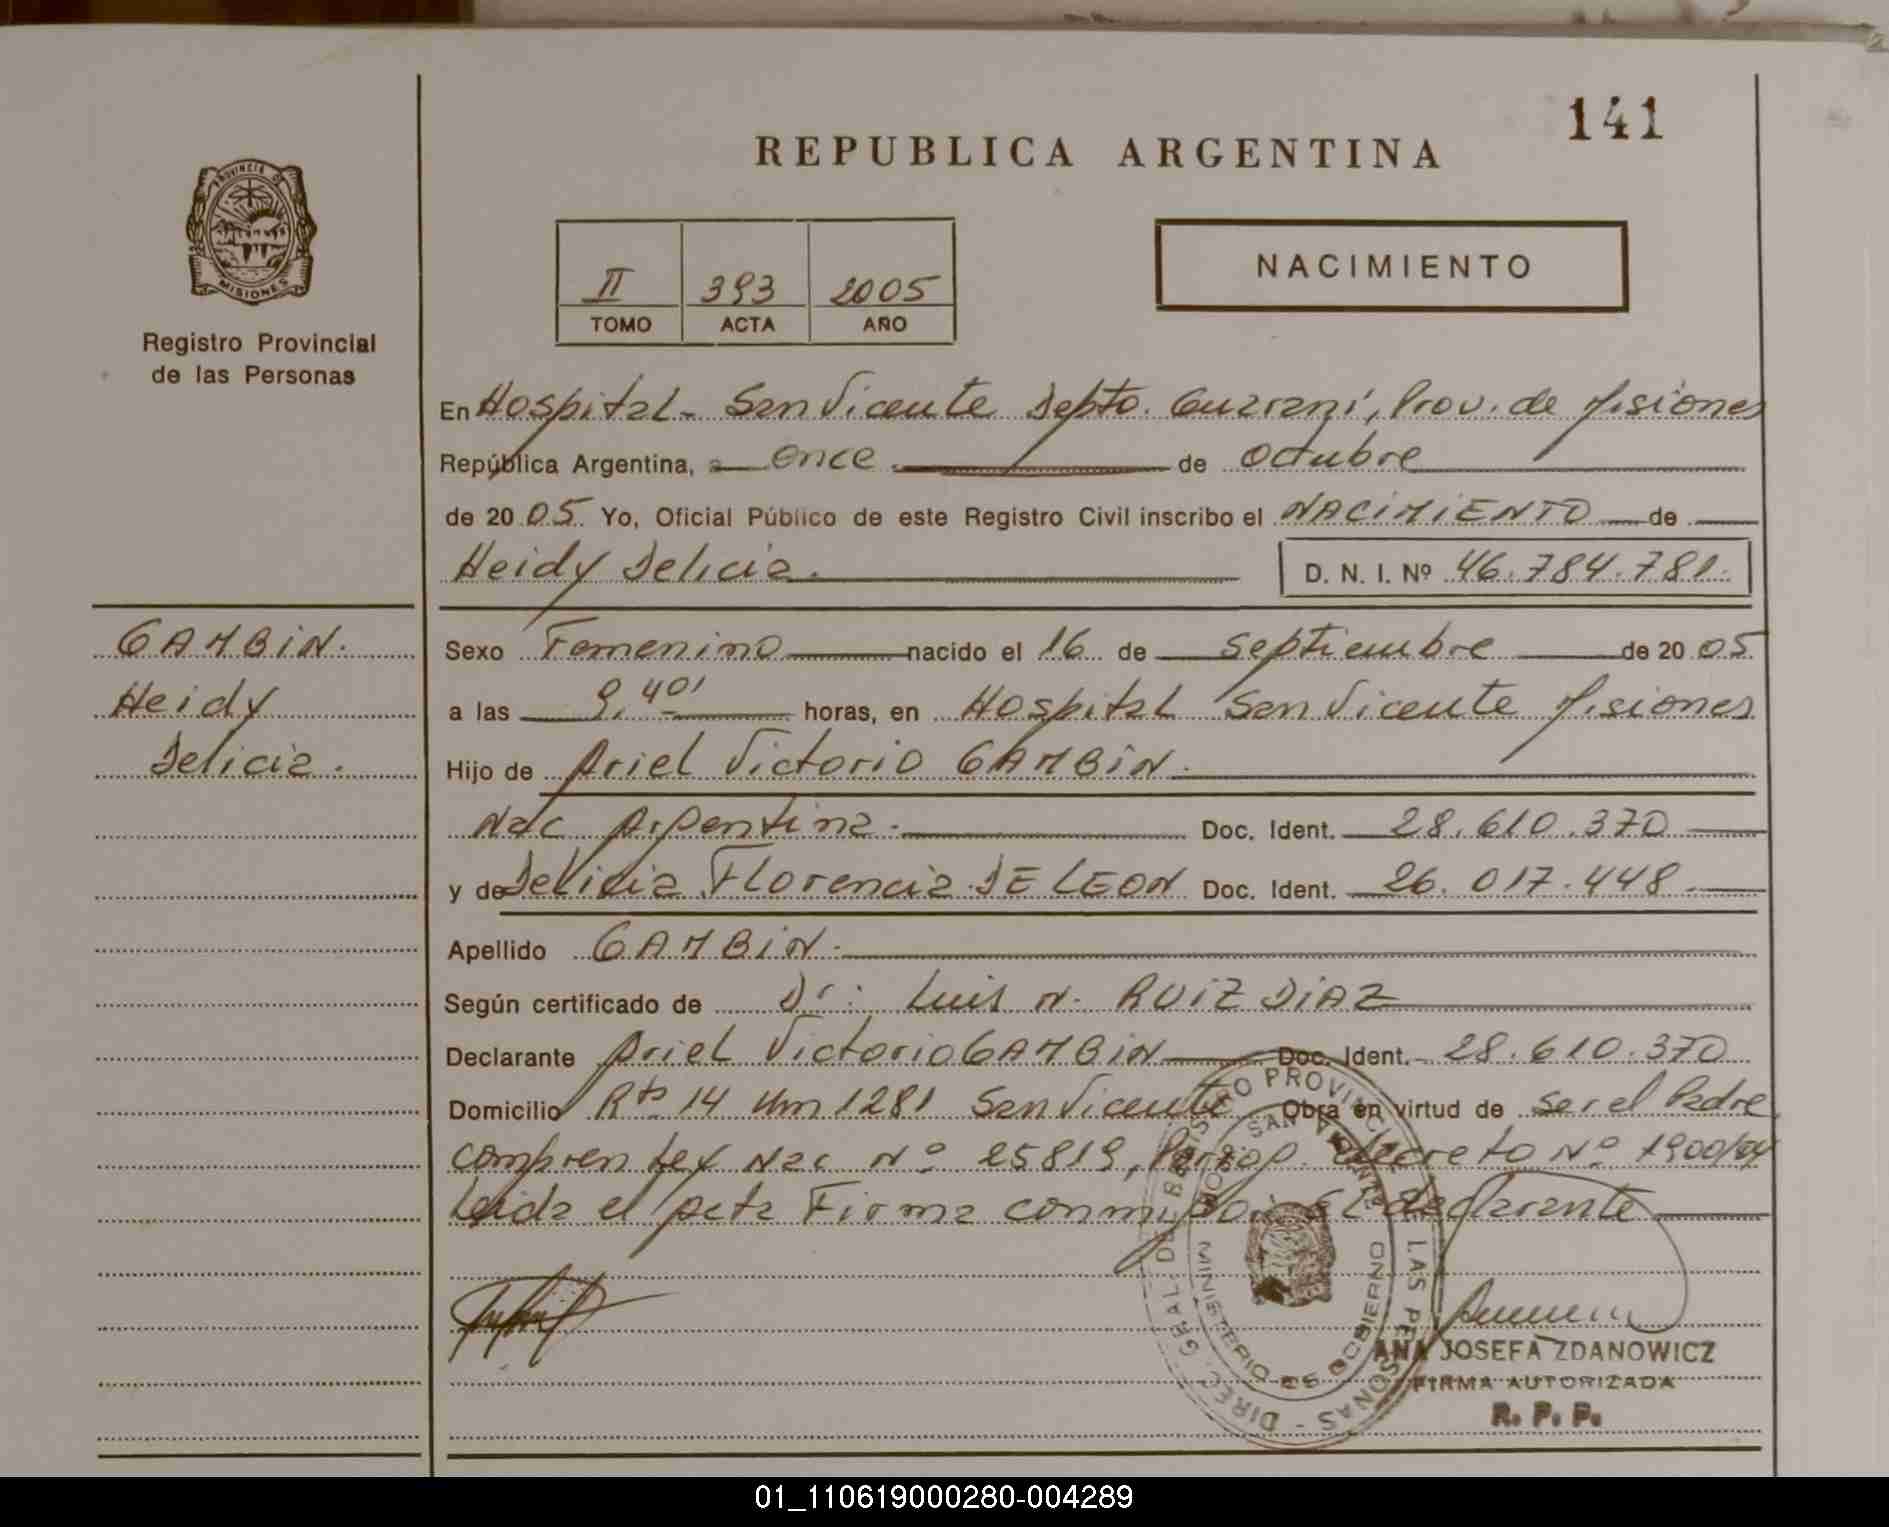 141
REPUBLICA ARGENTINA
PROVINCIA DE
MISIONES
Registro Provincial
de las Personas
II 393 2005
TOMO ACTA AÑO
NACIMIENTO
En Hospital - San Vicente Depto. Guarani, Prov. de Misiones
República Argentina, a once de octubre
de 2005. Yo, Oficial Público de este Registro Civil inscribo el NACIMIENTO de
Heidy Delicia. D. N. I. Nº 46.784.781.
GAMBIN.
Heidy
Delicia.
Sexo Femenino nacido el 16 de septiembre de 2005
a las 9,40' horas, en Hospital San Vicente Misiones
Hijo de Ariel Victorio GAMBIN.
Nac Argentina. Doc. Ident. 28.610.370
y de Delicia Florencia DE LEON Doc. Ident. 26.017.448
Apellido GAMBIN.
Según certificado de Dr: Luis N. RUIZ DIAZ
Declarante Ariel Victorio GAMBIN Doc. Ident. 28.610.370
Domicilio Rta 14 Km 1281 San Vicente Obra en virtud de ser el Padre
compren Ley Nac Nº 25819, Decreto Nº 1900/04
Leida el Acta Firma conmigo El declarante
DIREC. GRAL. DEL REGISTRO PROVINCIAL DE LAS PERSONAS
SAN VICENTE
MINISTERIO DE GOBIERNO
MISIONES
ANA JOSEFA ZDANOWICZ
FIRMA AUTORIZADA
R. P. P.
01_110619000280-004289